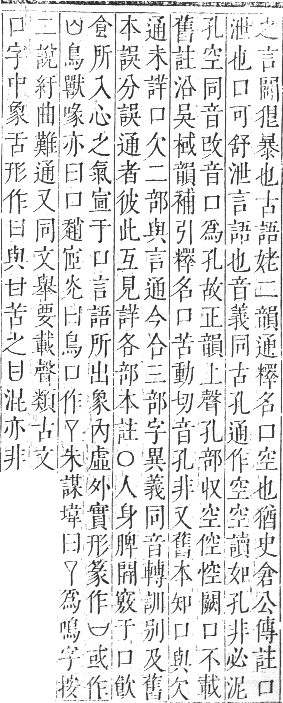 之言闢狚暴也古語姥二韻通釋名口空也猶史倉公傳註口
泄也口可舒泄言語也音義同古孔通作空空讀如孔非必泥
孔空同音改音口爲孔故正韻上聲孔部收空倥悾闕口不載
舊註沿吳棫韻補引釋名口苦動切音孔非又舊本知口與欠
通未詳口欠二部與言通今合三部字異義同音轉訓别及舊
本誤分誤通者彼此互見詳各部本註○人身脾開竅于口飮
食所入心之氣宣于口言語所出象內虛外實形篆作ㅂ或作
凵鳥獸喙亦曰口鄭宧炎曰鳥口作丫朱謀㙔曰丫爲鳴字按
二說紆曲難通又同文舉要載聲類古文
口字中象舌形作日與甘苦之甘混亦非